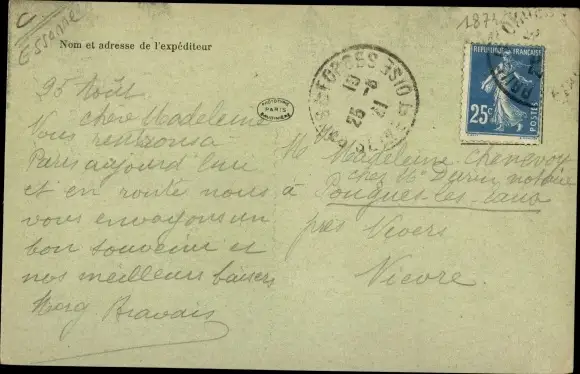 Essonne
187
Nom et adresse de l'expéditeur
25 Août
chère Madeleine
Nous rentrons à
Paris aujourd'hui
et en route nous
vous envoyons un
bon souvenir et
nos meilleurs baisers
Marg Bravais
PARIS
FORGES
S. & OISE
15
25 -8
21
RÉPUBLIQUE FRANÇAISE
25c
POSTES
Madeleine Chenevoy
chez Mr Durin notaire
à Pougues-les-Eaux
près Nevers
Nièvre.